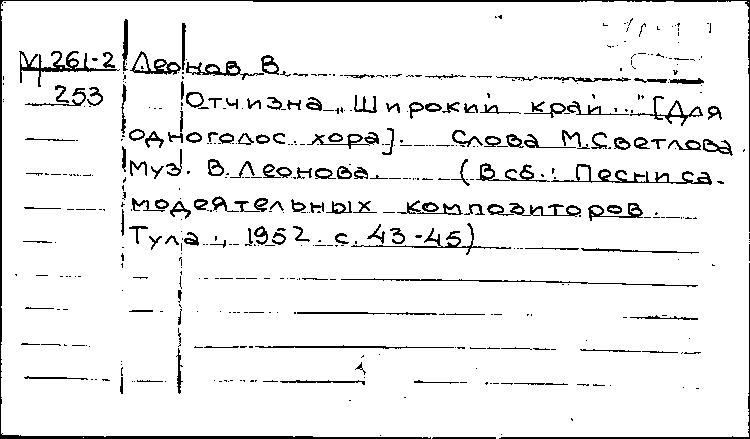 М 261-2 Леонов, В.
253 Отчизна „Широкий край..." [Для
одноголос. хора]. Слова М.Светлова.
Муз. В.Леонова. (В сб.: Песни са-
модеятельных композиторов.
Тула., 1952. с. 43-45)